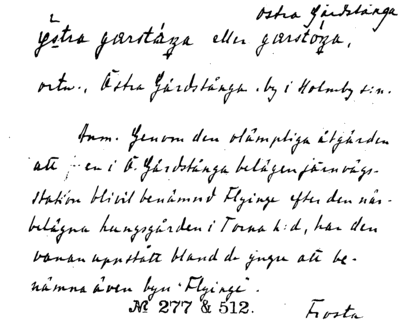 Östra Gårdstånga
ÿstra garståŋa eller garstóŋa,
ortn., Östra Gårdstånga, by i Holmby s:n.
Anm. Genom den olämpliga åtgärden
att en i Ö. Gårdstånga belägen järnvägs-
station blivit benämnd Flyinge efter den när-
belägna kungsgården i Torna h:d, har den
vanan uppstått bland de yngre att be-
nämna även byn "Flyinge".
№ 277 & 512.
Frosta